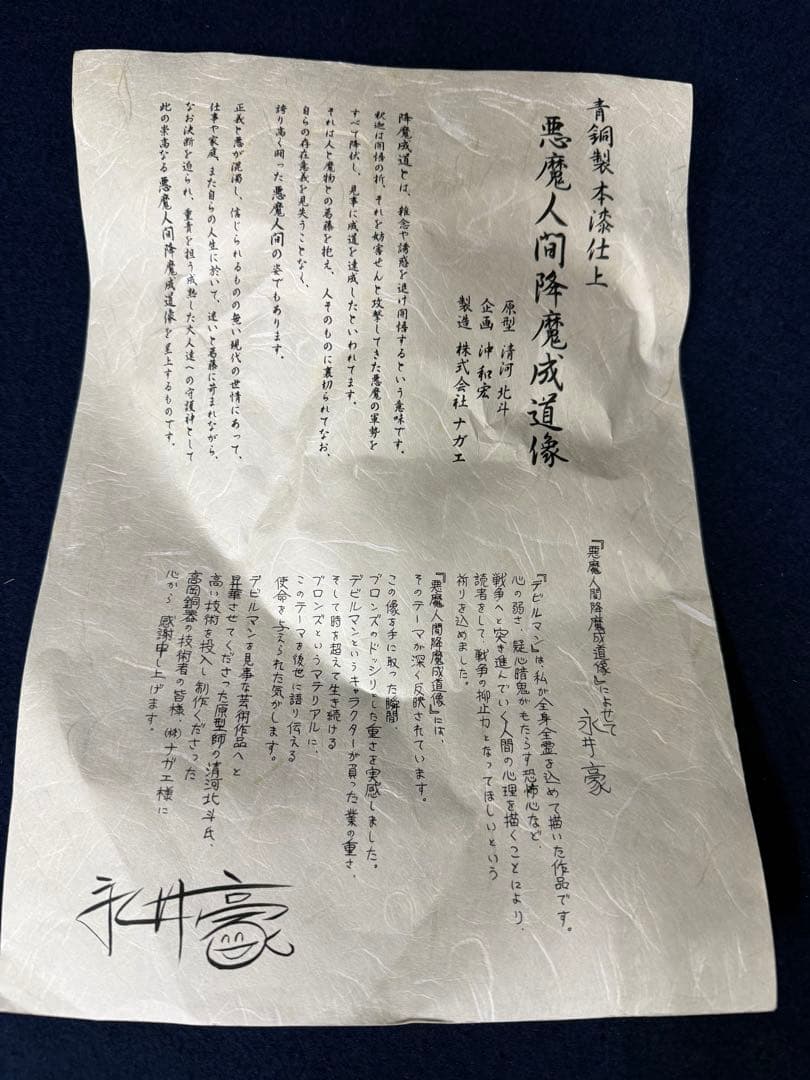 青銅製 本漆仕上
悪魔人間降魔成道像
原型 清河 北斗
企画 沖 和宏
製造 株式会社 ナガエ
降魔成道とは、雑念や誘惑を退け開悟するという意味です。
釈迦は開悟の折、それを妨害せんと攻撃してきた悪魔の軍勢を
すべて降伏し、見事に成道を達成したといわれてます。
それは人と魔物との葛藤を抱え、人そのものに裏切られてなお、
自らの存在意義を見失うことなく、
誇り高く闘った悪魔人間の姿でもあります。
正義と悪が混濁し、信じられるものの無い現代の世情にあって、
仕事や家庭、また自らの人生に於いて、迷いと葛藤に苛まれながら、
なお決断を迫られ、重責を担う成熟した大人達への守護神として
此の崇高なる悪魔人間降魔成道像を呈上するものです。
『悪魔人間降魔成道像』によせて
永井豪
『デビルマン』は、私が全身全霊を込めて描いた作品です。
心の弱さ、疑心暗鬼がもたらす恐怖心など、
戦争へと突き進んでいく人間の心理を描くことにより、
読者をして、戦争の抑止力となってほしいという
祈りを込めました。
『悪魔人間降魔成道像』には、
そのテーマが深く反映されています。
この像を手に取った瞬間、
ブロンズのドッシリとした重さを実感しました。
デビルマンというキャラクターが負った業の重さ、
そして時を超えて生き続ける
ブロンズというマテリアルに、
このテーマを後世に語り伝える
使命を与えられた気がします。
デビルマンを見事な芸術作品へと
昇華させてくださった原型師の清河北斗氏、
高い技術を投入し制作くださった
高岡銅器の技術者の皆様、㈱ナガエ様に
心から 感謝申し上げます。
永井豪